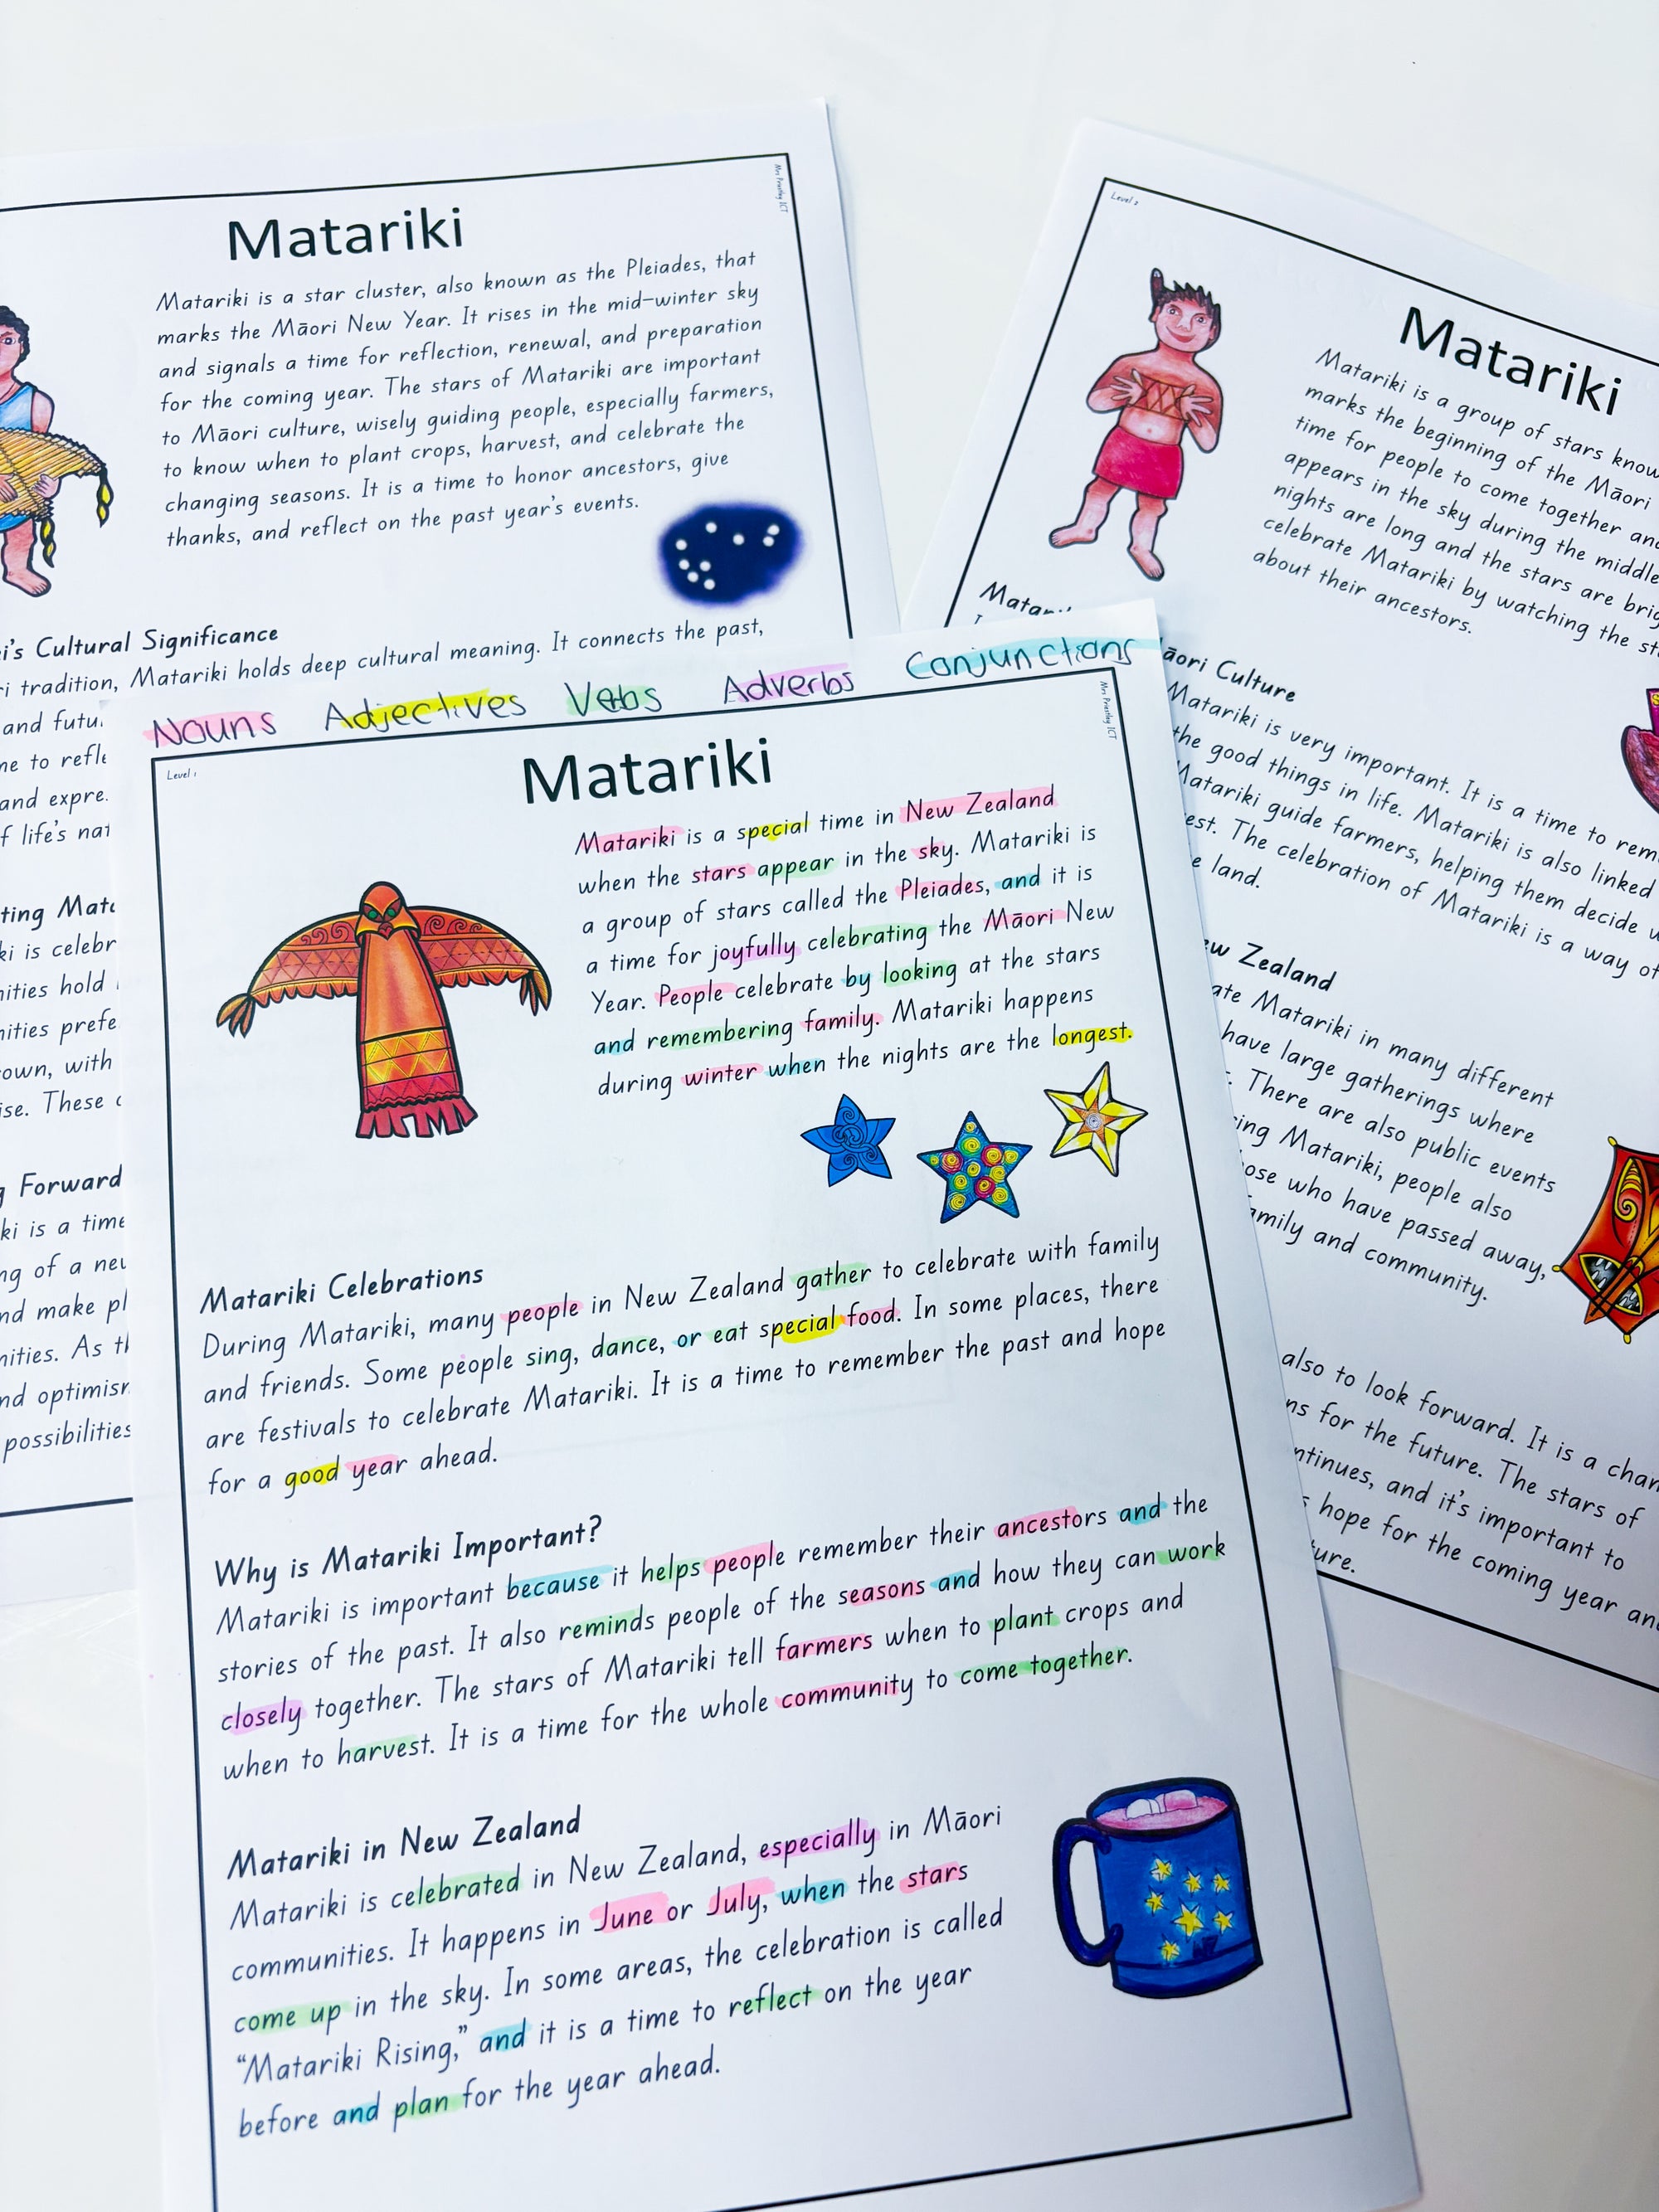 Mrs Priestley ICT
Matariki
Matariki is a star cluster, also known as the Pleiades, that
marks the Māori New Year. It rises in the mid-winter sky
and signals a time for reflection, renewal, and preparation
for the coming year. The stars of Matariki are important
to Māori culture, wisely guiding people, especially farmers,
to know when to plant crops, harvest, and celebrate the
changing seasons. It is a time to honor ancestors, give
thanks, and reflect on the past year's events.
Cultural Significance
tradition, Matariki holds deep cultural meaning. It connects the past,
and
to
and
life's
is
hold
with
These
Forward
is a time
of a
make
As
and
possibilities
Level 2
Matariki
Matariki is a group of stars
marks the beginning of the Māori
time for people to come together
appears in the sky during the middle
nights are long and the stars are
celebrate Matariki by watching the
about their ancestors.
Culture
Matariki is very important. It is a time to
the good things in life. Matariki is also linked
Matariki guide farmers, helping them decide
The celebration of Matariki is a way of
land.
Zealand
Matariki in many different
have large gatherings where
There are also public events
Matariki, people also
who have passed away,
and community.
also to look forward. It is a
for the future. The stars of
and it's important to
hope for the coming year
Nouns Adjectives Verbs Adverbs Conjunctions
Level 1
Mrs Priestley ICT
Matariki
Matariki is a special time in New Zealand
when the stars appear in the sky. Matariki is
a group of stars called the Pleiades, and it is
a time for joyfully celebrating the Māori New
Year. People celebrate by looking at the stars
and remembering family. Matariki happens
during winter when the nights are the longest.
Matariki Celebrations
During Matariki, many people in New Zealand gather to celebrate with family
and friends. Some people sing, dance, or eat special food. In some places, there
are festivals to celebrate Matariki. It is a time to remember the past and hope
for a good year ahead.
Why is Matariki Important?
Matariki is important because it helps people remember their ancestors and the
stories of the past. It also reminds people of the seasons and how they can work
closely together. The stars of Matariki tell farmers when to plant crops and
when to harvest. It is a time for the whole community to come together.
Matariki in New Zealand
Matariki is celebrated in New Zealand, especially in Māori
communities. It happens in June or July, when the stars
come up in the sky. In some areas, the celebration is called
“Matariki Rising,” and it is a time to reflect on the year
before and plan for the year ahead.